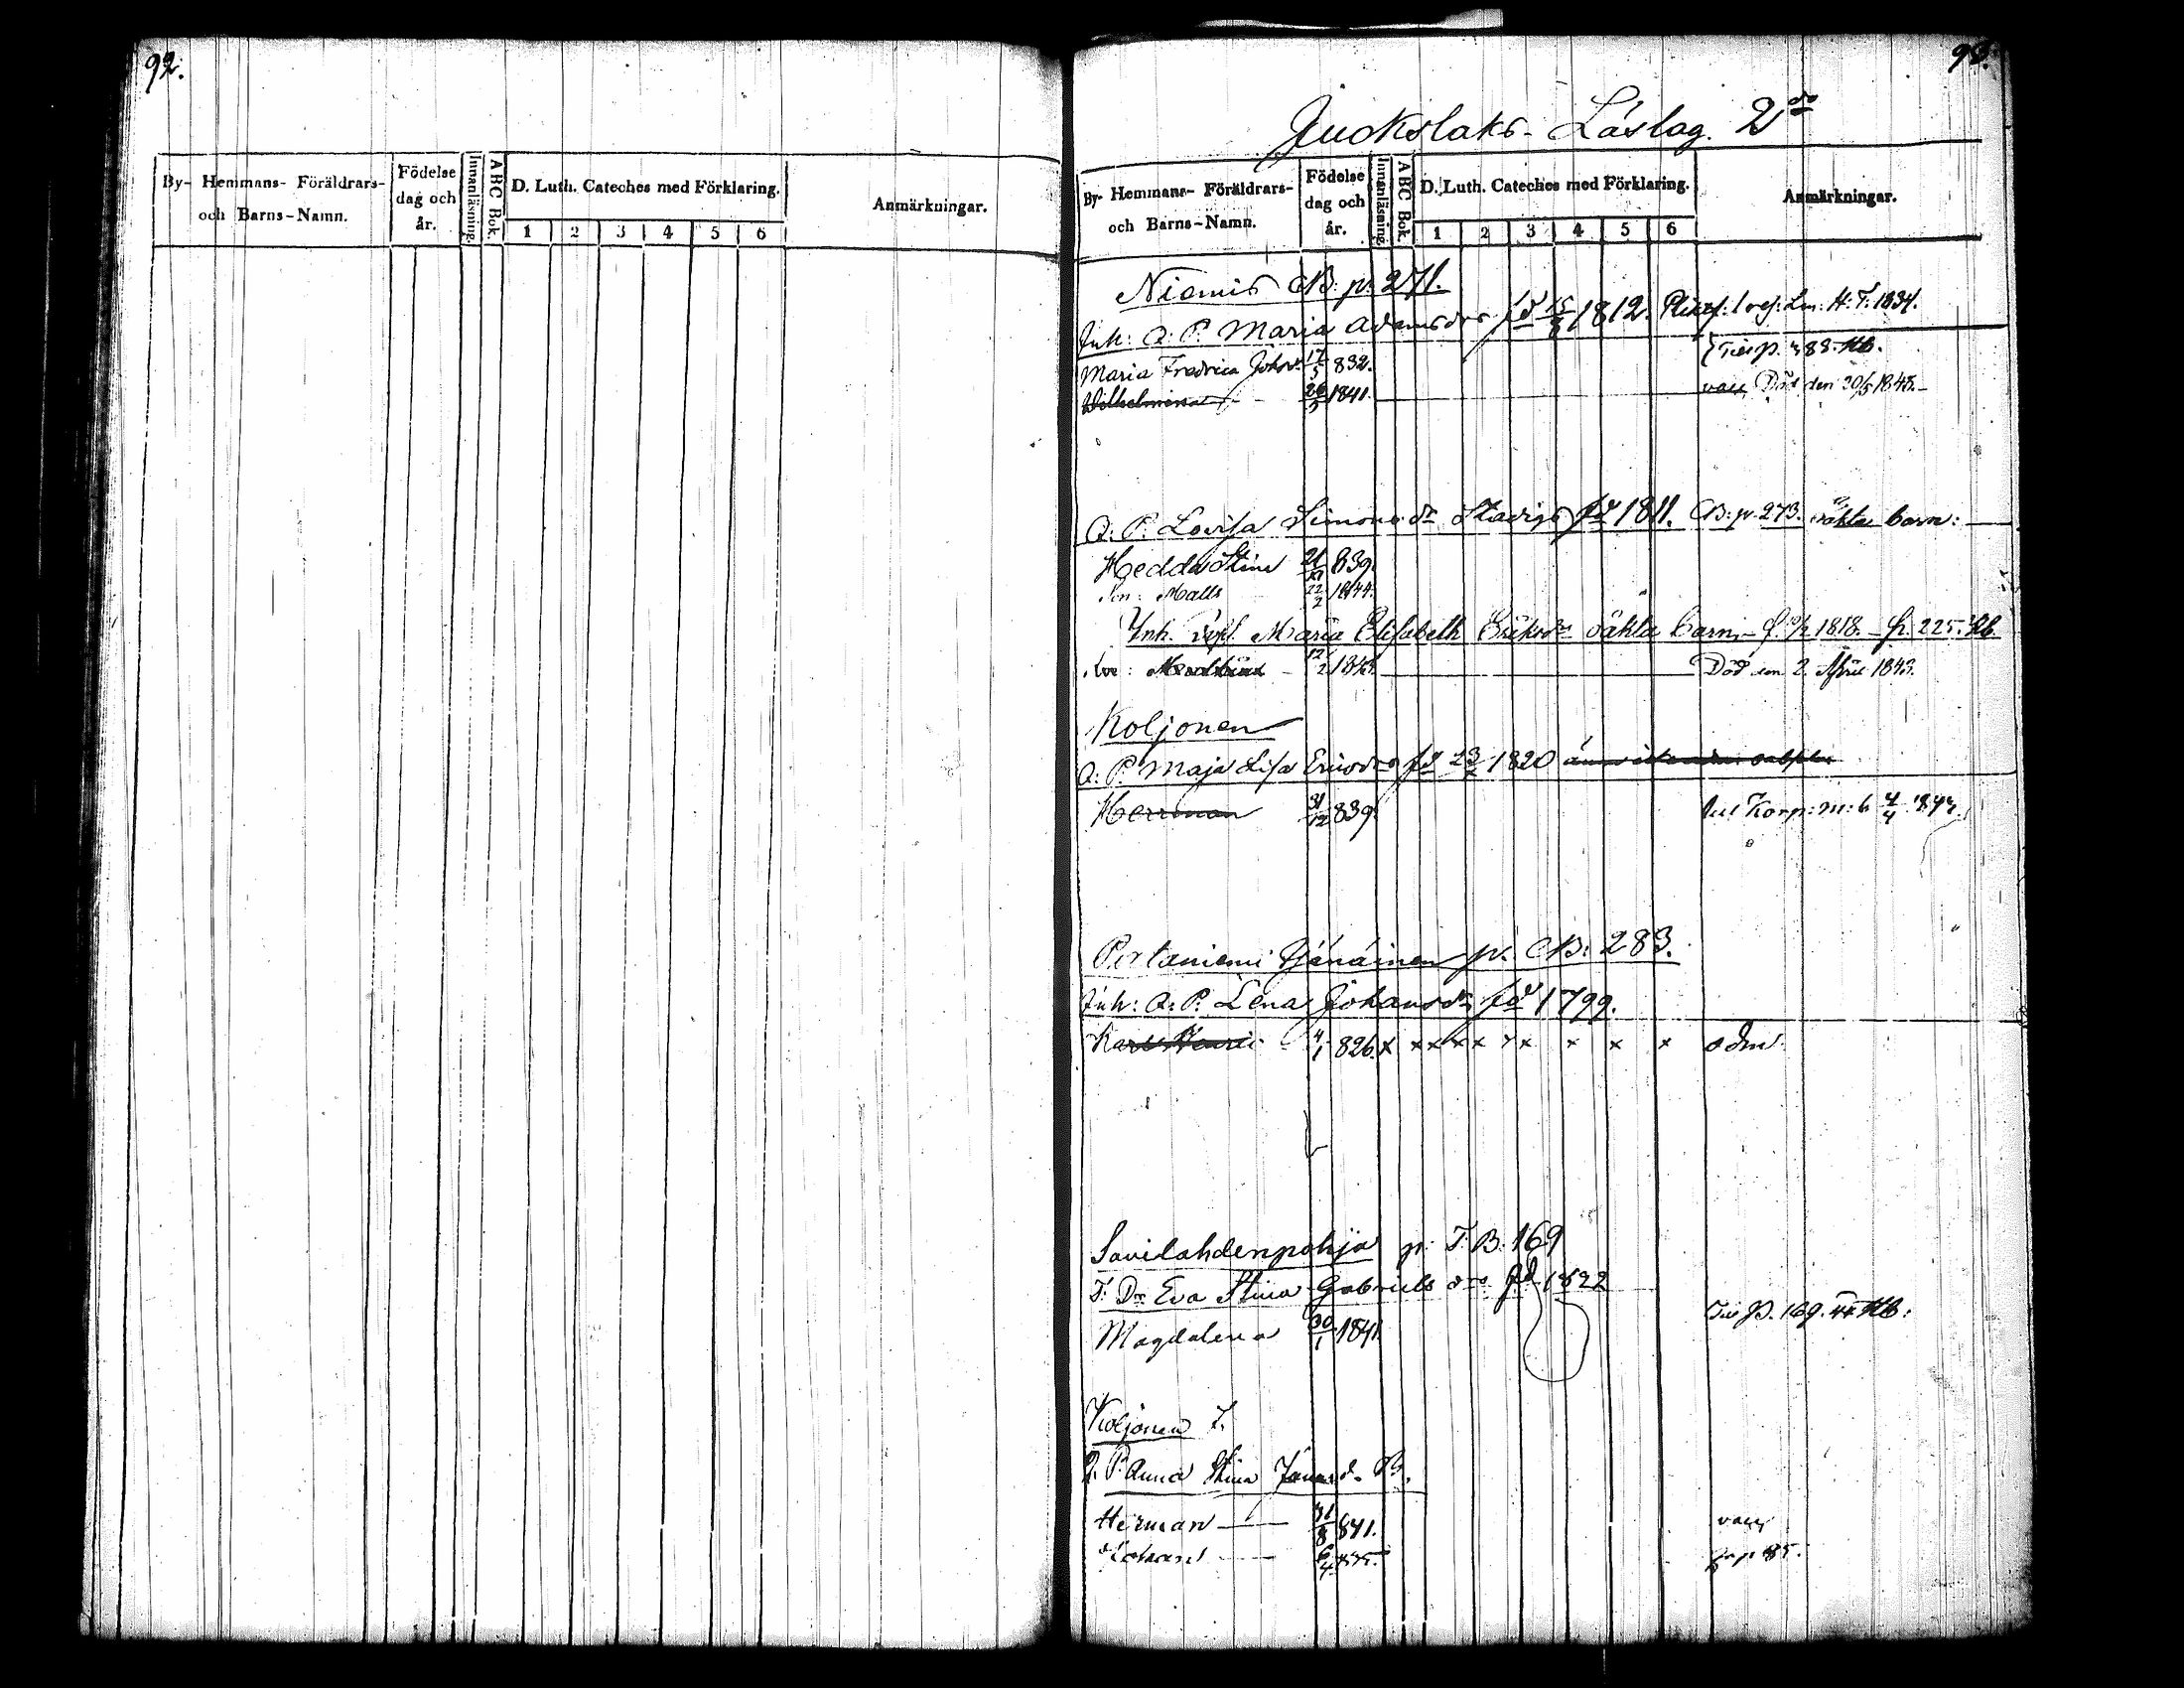 92.
By- Hemmans- Föräldrars-
och Barns-Namn.
Födelse
dag och
år.
Innanläsning.
ABC Bok.
D. Luth. Cateches med Förklaring.
1 2 3 4 5 6
Anmärkningar.
93.
Juokslaks- Läslag. 2do
By- Hemmans- Föräldrars-
och Barns-Namn.
Födelse
dag och
år.
Innanläsning.
ABC Bok.
D. Luth. Cateches med Förklaring.
1 2 3 4 5 6
Anmärkningar.
Niemis CB: p. 271.
Inh: Q: P. Maria Adamsdr fd 1812. H: T: 1834.
Maria Fredrica 17/5 832. p. 383. Kb.
Wilhelmina 1841. Död den 20/5 1845.
Q: P. Lovisa Simonsdr fd 1811. CB: p. 273. oäkta barn:
Hedda Stina 839.
Son: Matts 22/2 1844.
Inh. Maria Elisabeth Eriksdr oäkta barn - f. 1818. - p. 225. Kb.
12/2 1843. Död den 2. April 1843.
Koljonen
Q: P. Maja Lisa Ericsdr fd 1820
Herrman 31/12 839. till Korp: m: b 4/4 184
Pertaniemi p. CB: 283.
Inh: Q: P. Lena Johansdr fd 1799.
Karl Henric 4/1 826. x x x x x x x x x x adm.
Savilahdenpohja p: T: B: 169
T: Dr Eva Stina Gabriels dr fd 1822
Magdalena 30/1 1841. p. 169. Kb:
Koljonen T.
Q. P. Anna Stina
Herman 31/8 841. vacc
Johan 6/4 p 85.